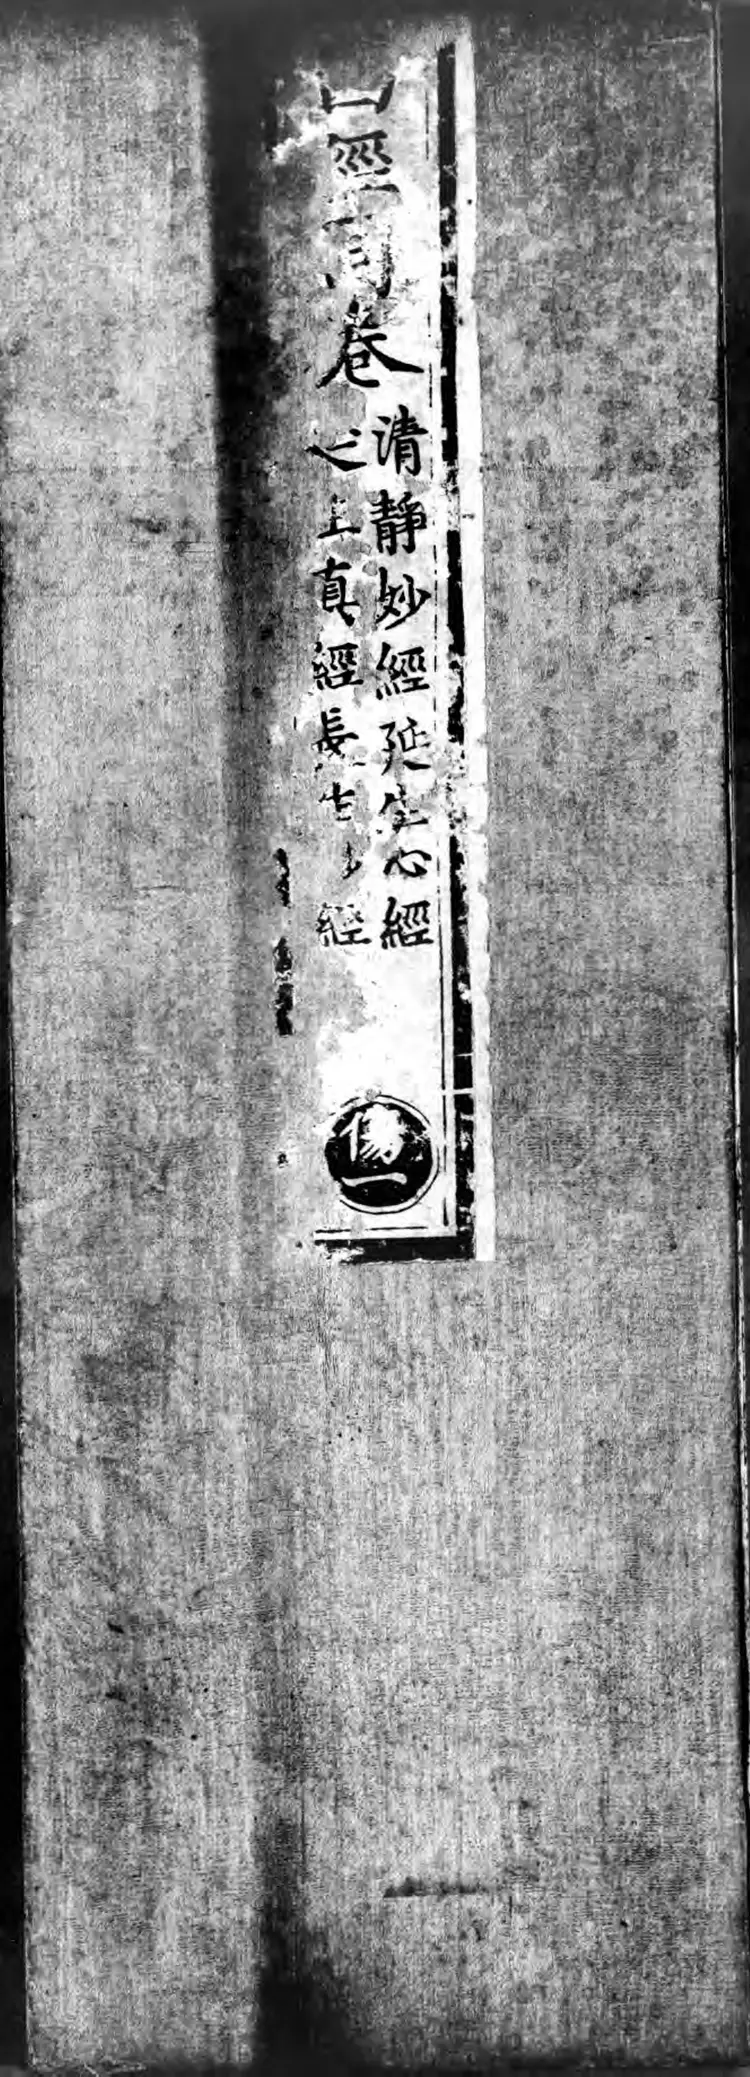 經同卷
清靜妙經延生心經
心上真經長生經
傷一